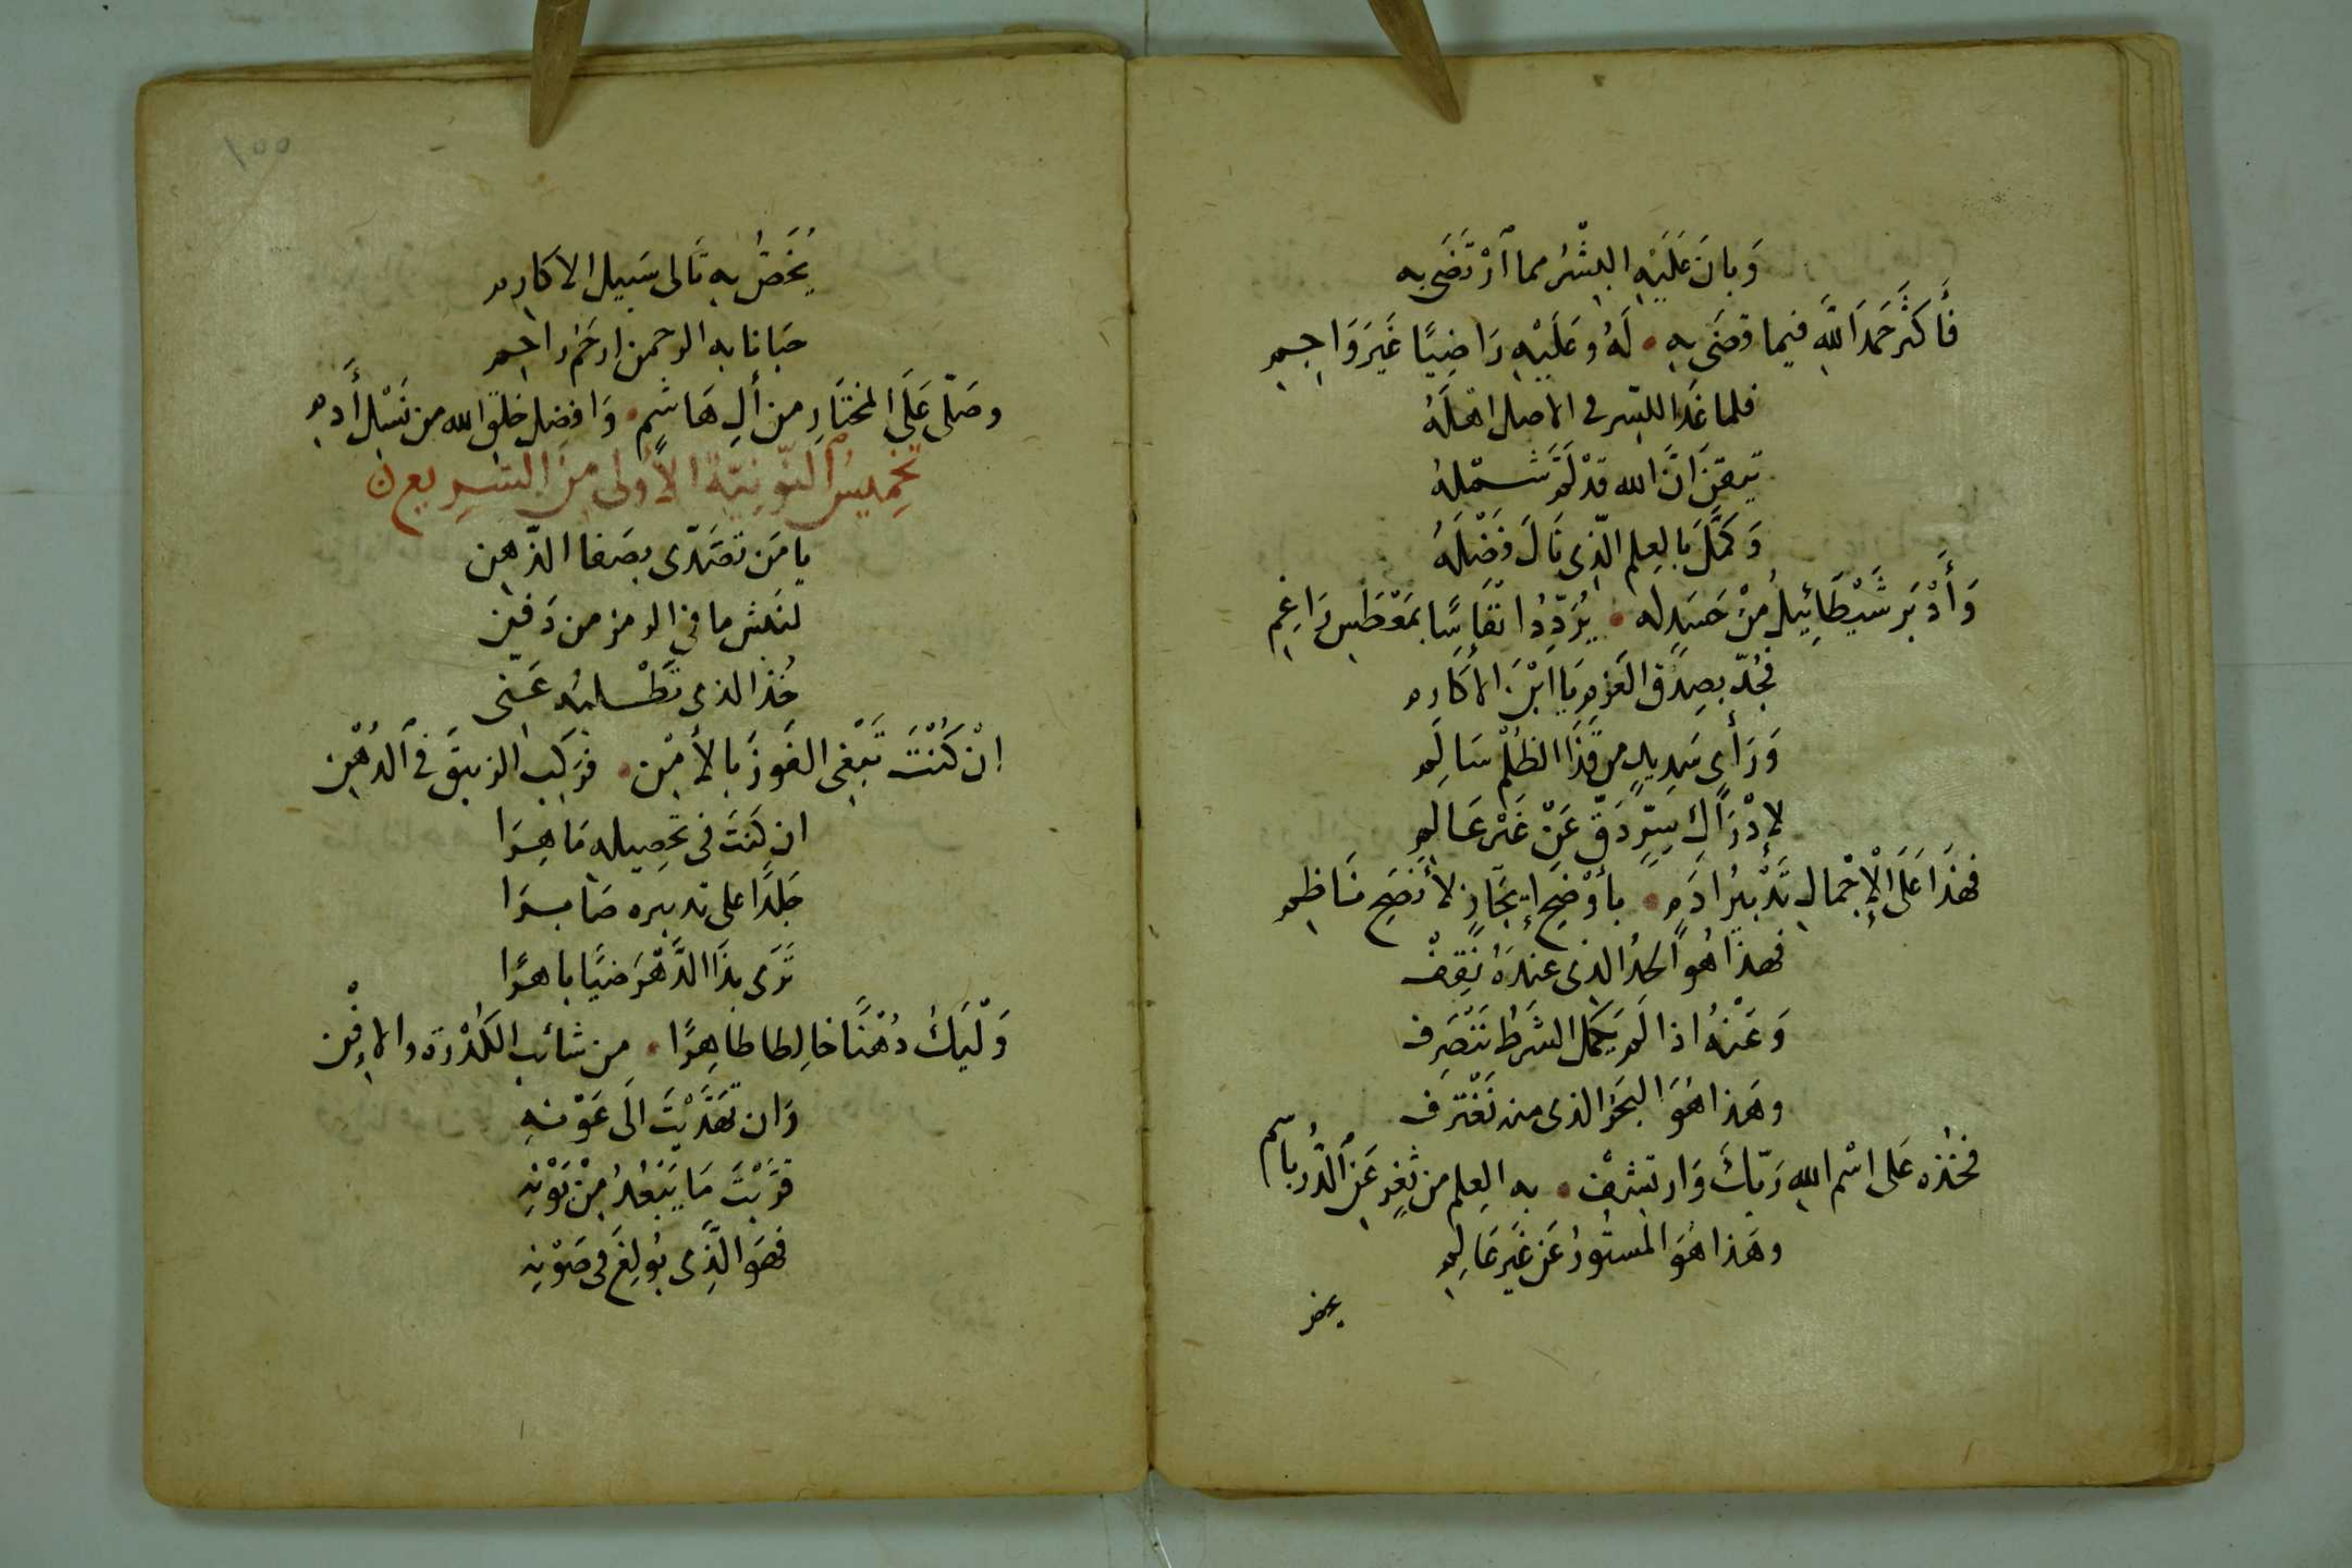 وَبانَ عَلَيْهِ البِشْرُ مما ٱرْتَضَى به
فَأَكثَرَ حَمْدَ اللَّهِ فيما قضَى بهِ • لَهُ وعَلَيْهِ رَاضِيًا غَيرَ وَاجِمِ
فلما غدا للسّر في الاصل اهلَهُ
تيقنَ انَّ الله قدْ لَمَّ شملهُ
وَكَمَّلَ بالعِلم الّذِي نَالَ فَضْلَهُ
وَأَدْبَرَ شَيْطَائِيلُ مِنْ حَسَدٍ له • يُرَدِّدُ انْفَاسًا بمَعْطَسِ رَاغِمِ
فَجُدّ بصِدْقِ العَزمِ يَا ابْنَ الأكَارم
وَرَأىٍ سَدِيدٍ من قَذَا الظُلْمِ سَالِم
لإدْرَاكِ سِرٍّ دَقَّ عَنْ غَيْرِ عَالِمِ
فهذَا عَلَى الْإِجْمالِ تَدْبيرُ ادَمٍ • بأَوْضَحِ إيجَازٍ لأَنصَحِ نَاظِم
فهذَا هُو الحدُ الذى عندَهُ نَقِفْ
وَعَنْهُ اذا لَم يَكمَل الشَرطُ نَنْصَرف
وهَذا هُوَ البَحرُ الذى منه نَغْتَرف
فخذه عَلى اسْم اللهِ رَبّكَ وَارتشِفْ • به العِلم من ثغرٍ عَنِ ٱلدُّرِّ باسِم
وهَذا هُوَ المَستُورُ عَن غَيرِ عَالِمِ
يخص
يُخَصُّ بهِ تَالى سَبيل الاكَارم
حَبانا به الرحمن ارحَمُ راحِم
وصَلّى عَلَى المختَارِ من ألِ هَاشمٍ • وَافضِل خلقِ الله من نَسْلِ أَدمِ
تخميسُ ٱلنّونيّة الأولى مِنَ السَّرِيع ن
يا مَن تصَدّى بصَفا الذّهن
لنبش ما في الرمز من دَفن
خُذ الذى تَطْلبُه عَنّى
انْ كُنْتَ تَبْغِى الفَوزَ بالأمْن • فرَكب الزيبقَ فى ٱلدُهْن
ان كنتَ فى تحصِيله مَاهِرَا
جَلدًا على تدبيره صَابرَا
تَرَى بذَا الدَّهْرَ ضيًا باهرًا
وَلْيَكُ دُهْنًا خالِطا طاهِرًا • من شائب الكُدْرَة والافْن
وَان تهَدَّيْتَ الَى عَوْنهِ
قرَّبْتَ مَا يَبْعُدُ مِنْ بَوْنِه
فهوَ الَّذِى بُولِغَ فى صَوْنِه